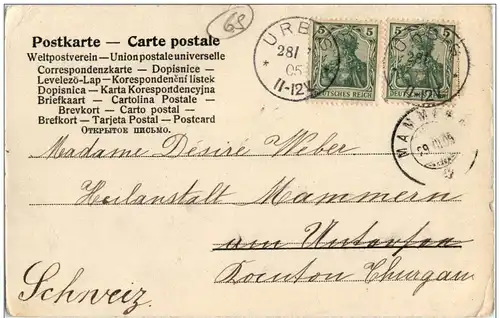 69
Postkarte — Carte postale
Weltpostverein — Union postale universelle
Correspondenzkarte — Dopisnice
Levelező-Lap — Korespondenční lístek
Dopisnica — Karta Korespondencyjna
Briefkaart — Cartolina Postale
Brevkort — Carto postal
Brefkort — Tarjeta Postal — Postcard
Открытое письмо.
URBIS
28/
05
11-12V
5 5
DEUTSCHES REICH
5 5
MAMM
Madame Désiré Weber
Heilanstalt Mammern
am Untersee
Kanton Thurgau
Schweiz.